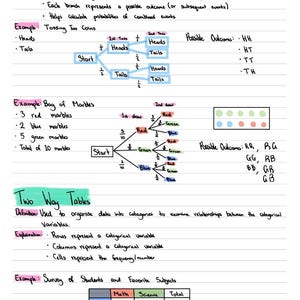 • Each branch represents a possible outcome (or subsequent events)
• Helps calculate probabilities of combined events
Example: Tossing Two Coins
• Heads
• Tails
Start
Heads
Tails
Heads
Tails
Heads
Tails
Possible Outcome: • HH
• HT
• TT
• TH
Example: Bag of Marbles
• 3 red marbles
• 2 blue marbles
• 5 green marbles
• Total of 10 marbles
Start
Red
Green
Blue
Possible Outcomes: RR, RG
GG, RB
BB, GR
GB
Two Way Tables
Definition: Used to organise data into categories to examine relationships between the categorical
variables.
Explanation: • Rows represent a categorical variable
• Columns represent a categorical variable
• Cells represent the frequency/number
Example: Survey of Students and Favorite Subjects
Math Science Total